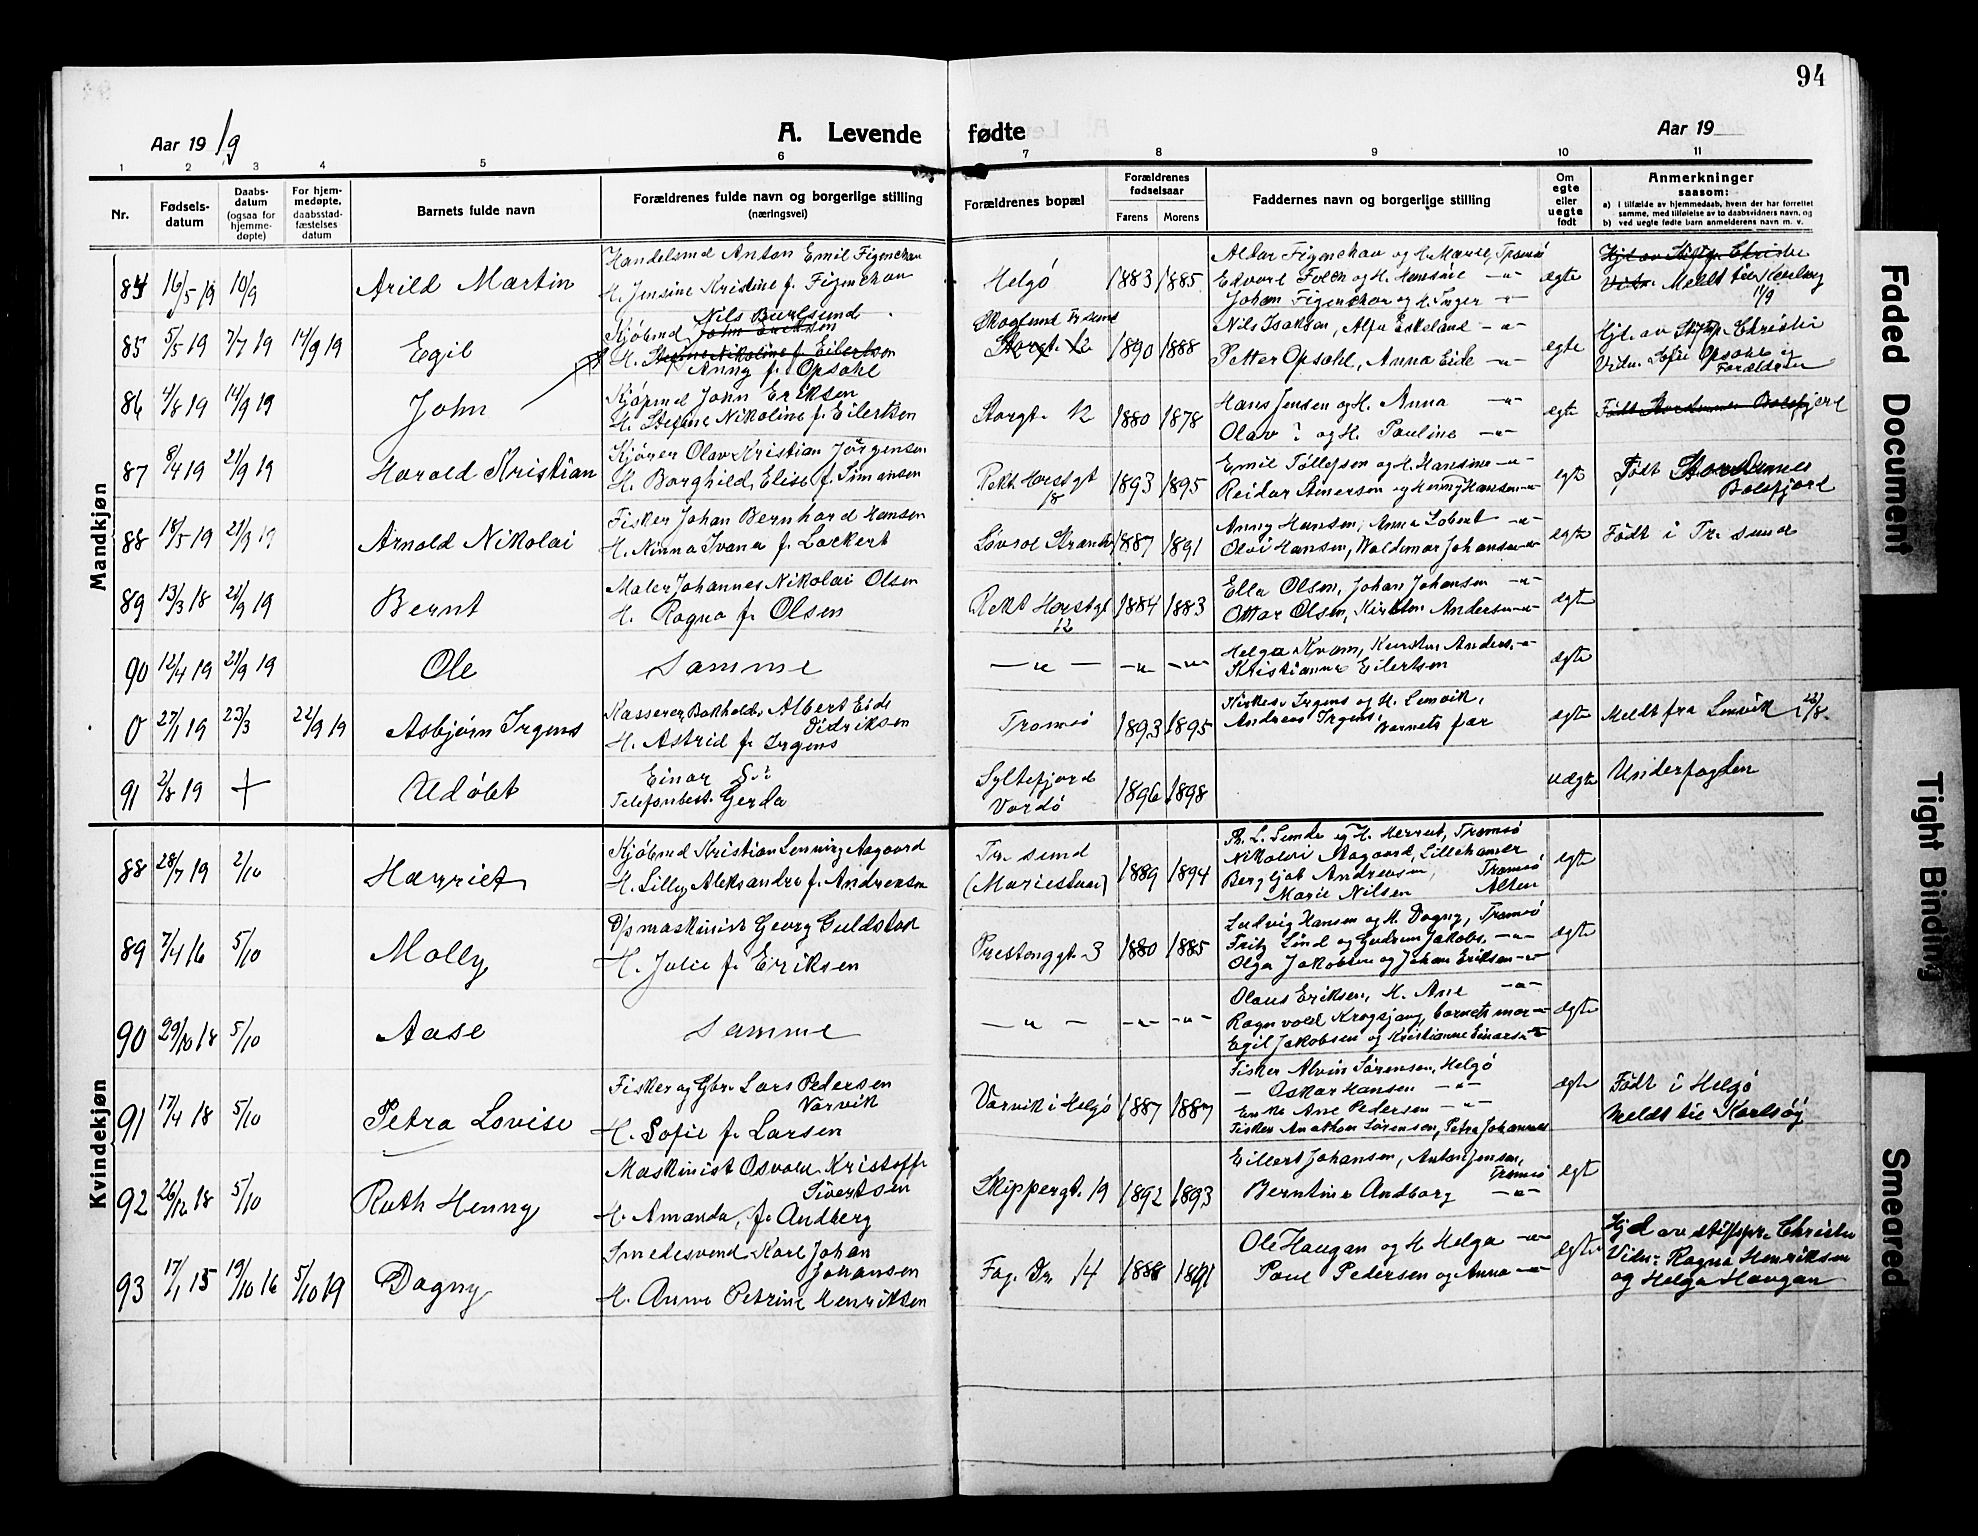 94
Aar 1919
A. Levende fødte
Aar 19
1 2 3 4 5 6 7 8 9 10 11
Nr.
Fødsels-
datum
Daabs-
datum
(ogsaa for
hjemme-
døpte)
For hjem-
medøpte,
daabsstad-
fæstelses
datum
Barnets fulde navn
Forældrenes fulde navn og borgerlige stilling
(næringsvei)
Forældrenes bopæl
Forældrenes
fødselsaar
Farens Morens
Faddernes navn og borgerlige stilling
Om
egte
eller
uegte
født
Anmerkninger
saasom:
a) i tilfælde av hjemmedaab, hvem der har forrettet
samme, med tilføielse av to daabsvidners navn, og
b) ved uegte fødte barn anmelderens navn m. v.
Mandkjøn
84 16/5 19 10/9 Arild Martin
Handelsmd Anton Emil Figenchau
H. Jensine Kristine f. Figenchau
Helgö 1883 1885
Aldar Figenchau og H. Marie, Tromsö
Edvard Falch og H. Hansine -"-
Johan Figenchau og H. Inger -"-
egte
Hjd. av Stiftpr. Christie
Vidn. Meldt til Karlsøy
11/9
85 5/5 19 7/7 19 14/9 19 Egil
Nils Burlsund
Kjöbmd John Eriksen
H. Stefine Nikoline f. Eilertsen
Anny f. Opsahl
Skoglund Tr. sund
Storgt. 12 1890 1888
Nils Isaksen, Alfa Eskeland -"-
Petter Opsahl, Anna Eide -"-
egte
Hjd. av Stiftp. Christie
Vidn. Sofie Opsahl og
Forældrene
86 4/8 19 14/9 19 John
Kjöpmd John Eriksen
H. Stefine Nikoline f. Eilertsen
Storgt. 12 1880 1878
Hans Jensen og H. Anna -"-
Olav ? og H. Pauline -"-
egte
Født Stordsnes Balsfjord
87 8/4 19 21/9 19 Harald Kristian
Kjører Olav Kristian Jörgensen
H. Borghild Elise f. Simonsen
Rekt. Horstgt
18 1893 1895
Emil Tollefsen og H. Hansine -"-
Reidar Amersen og Henny Hansen -"-
egt
Født Stordsnes
Balsfjord
88 18/5 19 21/9 19 Arnold Nikolai
Fisker Johan Bernhard Hansen
H. Ninna Ivana f. Lockert
1887 1891
Anny Hansen, Anna Lobert -"-
Olai Hansen, Waldemar Johansen -"-
egte
Född i Tr. sund
89 13/3 18 21/9 19 Bernt
Maler Johannes Nikolai Olsen
H. Ragna f. Olsen
Rekt Horstgt
12 1884 1883
Ella Olsen, Johan Johansen -"-
Ottar Olsen, Kirsten Andersen -"-
egte
90 12/4 19 21/9 19 Ole
Samme
-"- -"- -"-
Helga Kvam, Karsten Anders. -"-
Kristianne Eilertsen
egte
0 27/1 19 23/3 22/9 19 Asbjörn Irgens
Kasserer Bokhold. Albert Eide
Didriksen
H. Astrid f. Irgens
Tromsö 1893 1895
Irgens og H. Lenvik,
Andreas Irgens, Barnets far
egte
Meldt fra Lenvik 12/8.
91 2/8 19 + Udöbt
Einar S.?
Telefonbest. Gerda
Syltefjord
Vardö 1896 1898
uegte
Underfogden
Kvindekjøn
88 28/7 19 2/10 Harriet
Kjöbmd Kristian Lenning Aagaard
H. Lilly Aleksandra f. Andresen
Tr. sund
1889 1894
Th. L. Sunde og H. Herrut, Tromsö
Nikolai Aagaard, Lillehamer
Bergljot Andresen, Tromsö
Marie Nilsen Alten
egte
89 7/4 16 5/10 Molly
D/s maskinist Georg Guldstad
H. Julie f. Eriksen
Prestenggt. 3 1880 1885
Ludvig Hansen og H. Dagny, Tromsö
Fritz Lind og Gudrun Jakobs. -"-
Olga Jakobsen og Johan Eriksen -"-
egte
90 29/10 18 5/10 Aase
Samme
-"- -"- -"-
Olaus Eriksen, H. Ane -"-
Ragnvald Krogsjang, barnets mor -"-
Egil Jakobsen og Kristianne Einarsen -"-
egte
91 17/4 18 5/10 Petra Lovise
Fisker og Gbr. Lars Pedersen
Varvik
H. Sofie f. Larsen
Varvik i Helgö 1887 1887
Fisker Alvin Sörensen, Helgö
- Oskar Hansen -"-
Enke Ane Pedersen -"-
Fisker Anathon Sörensen, Petra Johannes
egte
Född i Helgö
Meldt til Karlsöy
92 26/12 18 5/10 Ruth Henny
Maskinist Osvald Kristoffr
Sivertsen
H. Amanda, f. Andberg
Skippergt. 19 1892 1893
Eilert Johansen, Anton Jensen,
Tromsö
Berntine Andberg -"-
egt
93 17/1 15 19/10 16 5/10 19 Dagny
Smedesvend Karl Johan
Johansen
H. Anna Petrine Henriksen
14 1888 1891
Ole Haugan og H. Helga -"-
Paul Pedersen og Anna -"-
egte
Hjd av stiftspr. Christie
Vidn: Ragna Henriksen
og Helga Haugan
Faded Document
Tight Binding
Smeared